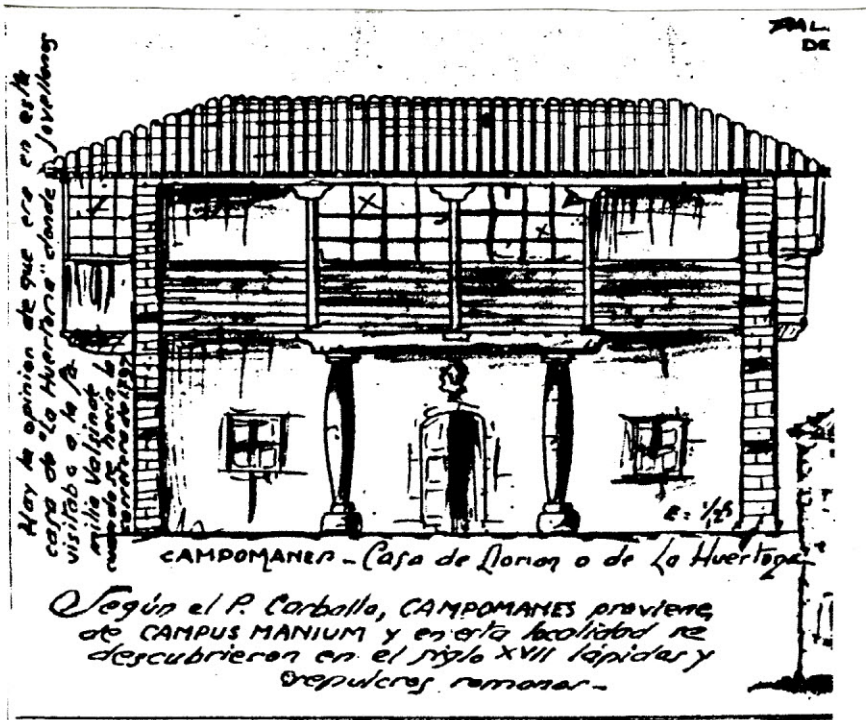 Hay la opinion de que era en esta
casa de "La Huertona" donde Jovellanos
visitaba a la fa-
milia Valsinate
cuando se hacia la
carretera de 1797
PAL.
DE
E: 1/2
CAMPOMANES - Casa de Llorian o de La Huertona
Según el P. Carballo, CAMPOMANES proviene,
de CAMPUS MANIUM y en esta localidad se
descubrieron en el siglo XVII lápidas y
sepulcros romanos -